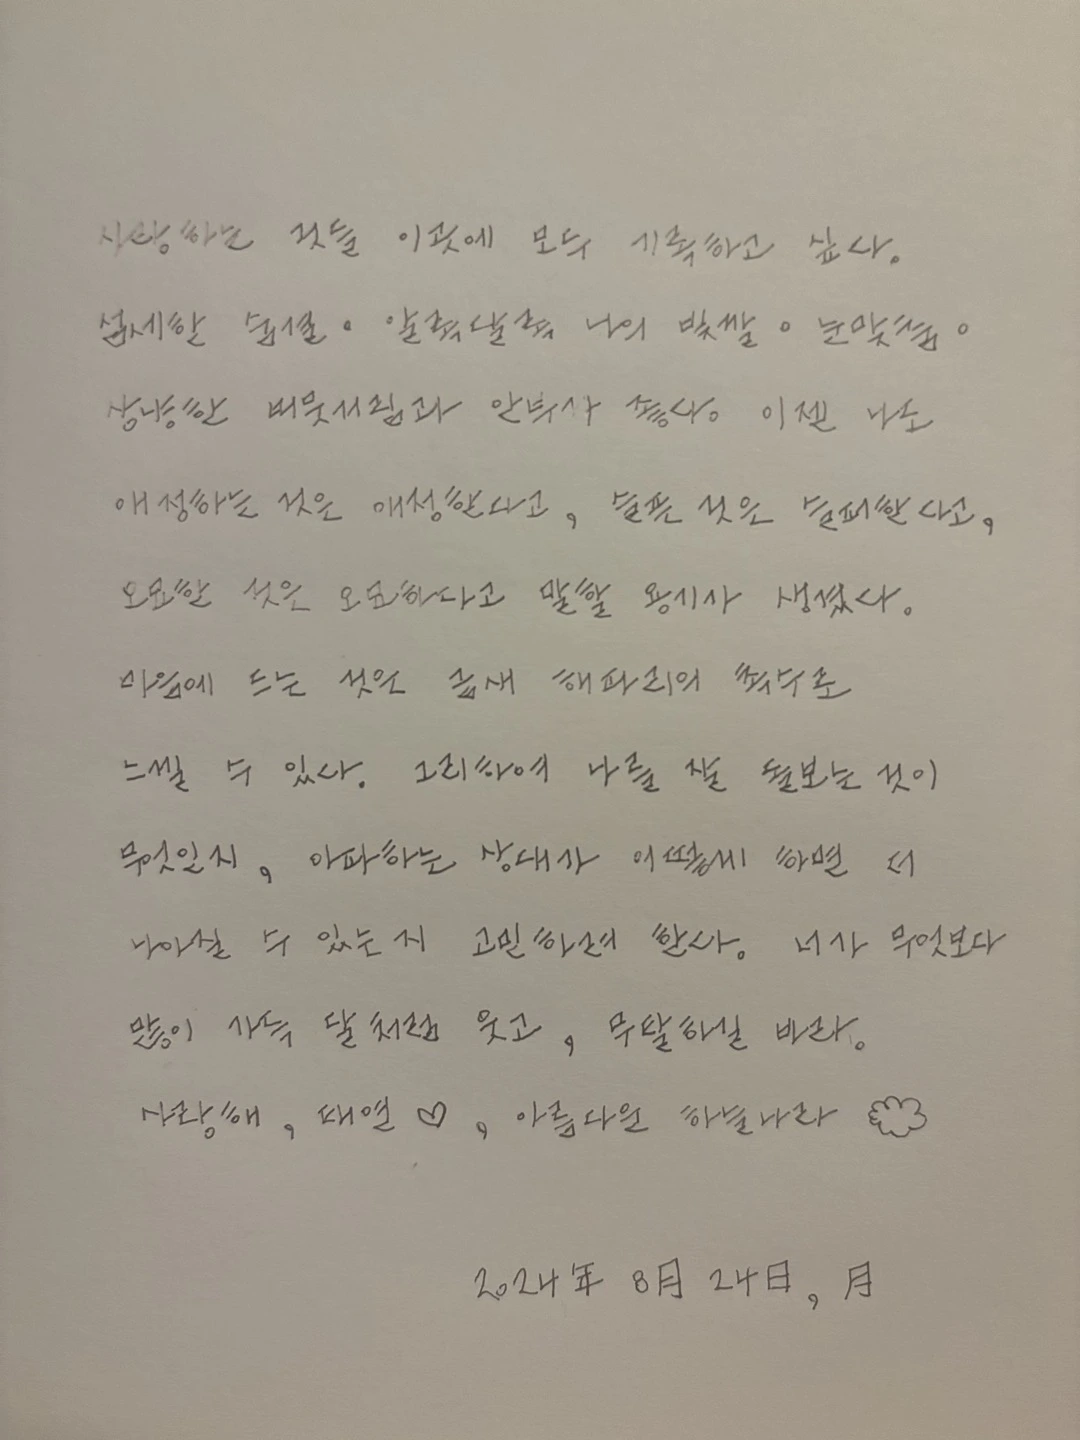 사랑하는 것들 이곳에 모두 기록하고 싶다.
섬세한 숨결. 알록달록 나의 빛깔. 눈맞춤.
상냥한 버릇처럼과 안부가 좋다. 이젠 나도
애정하는 것은 애정한다고, 슬픈 것은 슬퍼한다고,
오묘한 것은 오묘하다고 말할 용기가 생겼다.
마음에 드는 것은 금새 해파리의 촉수로
느낄 수 있다. 그리하여 나를 잘 돌보는 것이
무엇일지, 아파하는 상대가 어떻게 하면 더
나아질 수 있는지 고민하려 한다. 너가 무엇보다
많이 가득 달처럼 웃고, 무탈하길 바라.
사랑해, 태열 ♡, 아름다운 하늘나라
2024年 8月 24日, 月